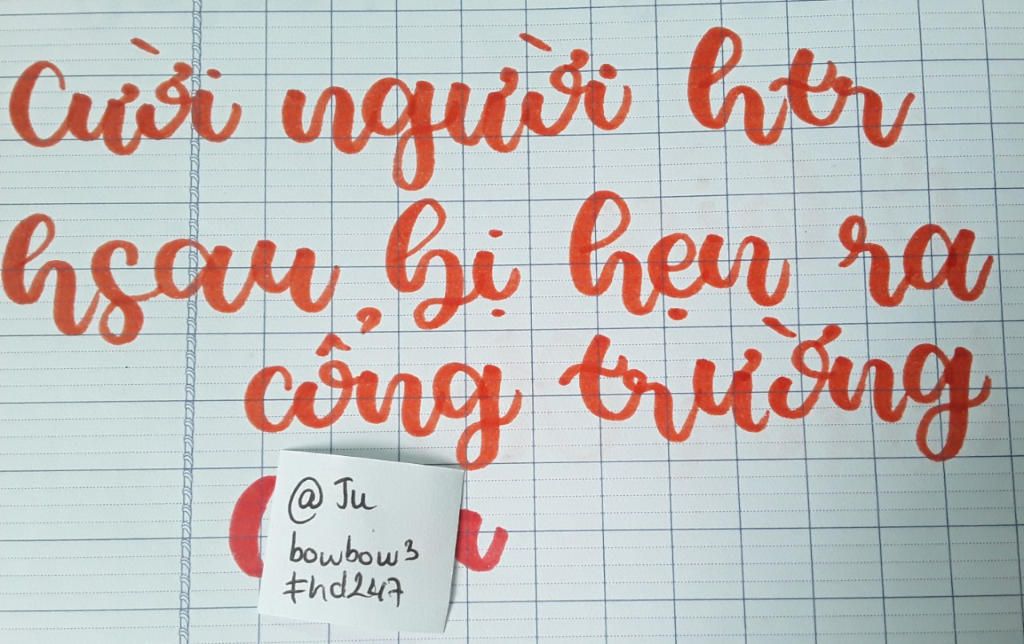 Cười người htr
hsau bị hẹn ra
cổng trường
@ Ju
bowbow3
#hd247